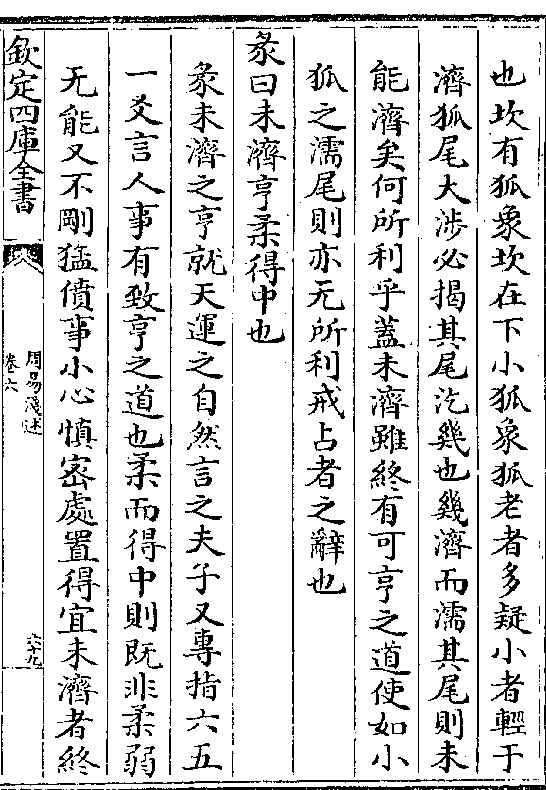 也坎有狐象坎在下小狐象狐老者多疑小者輕于
濟狐尾大涉必揭其尾汔幾也幾濟而濡其尾則未
能濟矣何所利乎蓋未濟雖終有可亨之道使如小
狐之濡尾則亦无所利戒占者之辭也
彖曰未濟亨柔得中也
彖未濟之亨就天運之自然言之夫子又專指六五
一爻言人事有致亨之道也柔而得中則既非柔弱
无能又不剛猛僨事小心慎密處置得宜未濟者終
欽定四庫全書
周易淺述
卷六
六十九